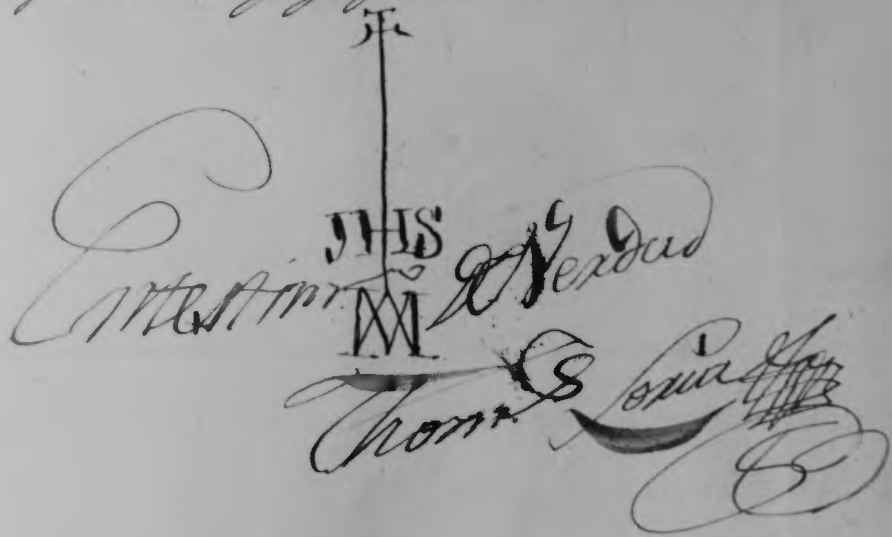 JHS
En testim.º de Verdad
Thomas Loria